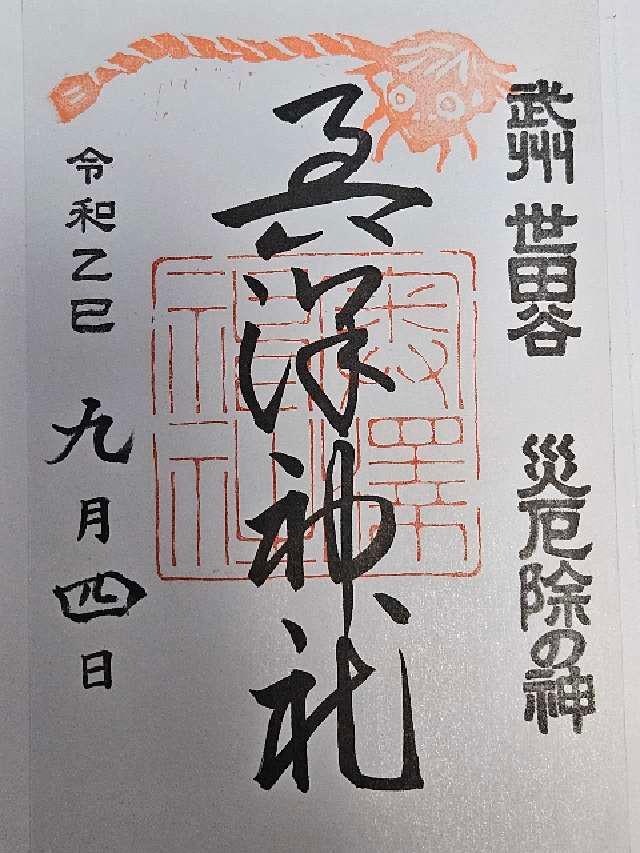 武州 世田谷 災厄除の神
奥澤神社
奥澤
神社
令和乙巳 九月四日